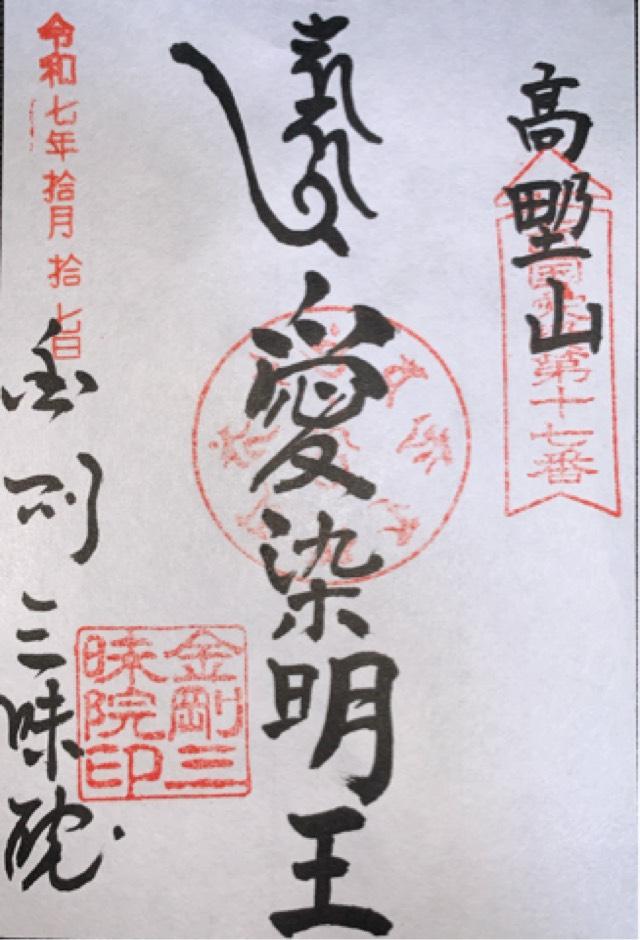 高野山
第十七番
愛染明王
令和七年拾月拾七日
金剛三味院
金剛三
昧院印